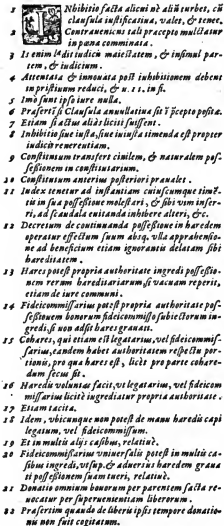 1 INhibitio facta alicui ne aliũ turbet, cũ
clausula iustificatiua, valet, & tenet.
2 Contraueniens tali præcepto mulctatur
in pœna comminata.
3 Is enim lædit iudicis maiestatem, & insimul partem, & iudicium.
4 Attentata & innouata post inhibitionem debent
in pristinum reduci, & u. 11. in fi.
5 Imò sunt ipso iure nulla.
6 Præsertĩ si Clausula annullatiua sit ĩ p̃cepto posita.
7 Etiam si actus aliàs liciti fuissent.
8 Inhibitio siue iusta, siue iniusta timenda est propter
iudicis reuerentiam.
9 Constitutum transfert ciuilem, & naturalem possessionem in constitutarium.
10 Constitutum anterius posteriori præualet.
11 Iudex tenetur ad instantiam cuiuscumque timẽtis
in sua possessione molestari, & sibi vim inferri, ad scandala euitanda inhibere alteri, &c.
12 Decretum de continuanda possessione in hæredem
operatur effectum suum absq. vlla apprehensione
ad beneficium etiam ignorantis delatam sibi
hæreditatem.
13 Hæres potest propria authoritate ingredi possessionem
rerum hæreditariarum, si vacuam reperit,
etiam de iure communi.
14 Fideicommissarius potest propria authoritate possessionem
bonorum fideicommisso subiectorum ingredi,
si non adsit hæres grauatus.
15 Cohæres, qui etiam est legatarius, vel fideicommissarius,
eandem habet authoritatem respectu portionis,
pro qua hæres est, licèt pro parte cohæredum
secus sit.
16 Hæredis voluntas facit, vt legatarius, vel fideicommissarius
licitè ingrediatur propria authoritate.
17 Etiam tacita.
18 Idem, vbicunque non potest de manu hæredis capi
legatum, vel fideicommissum.
19 Et in multis alijs casibus, relatiuè.
20 Fideicommissarius vniuersalis potest in multis casibus
ingredi, vt sup. & aduersus hæredem grauatũ
possessionem suam tueri, relatiuè.
21 Donatio omnium bonorum per parentem facta reuocatur
per superuenientiam liberorum.
22 Præsertim quando de liberis ipsis tempore donationis
non fuit cogitatum.